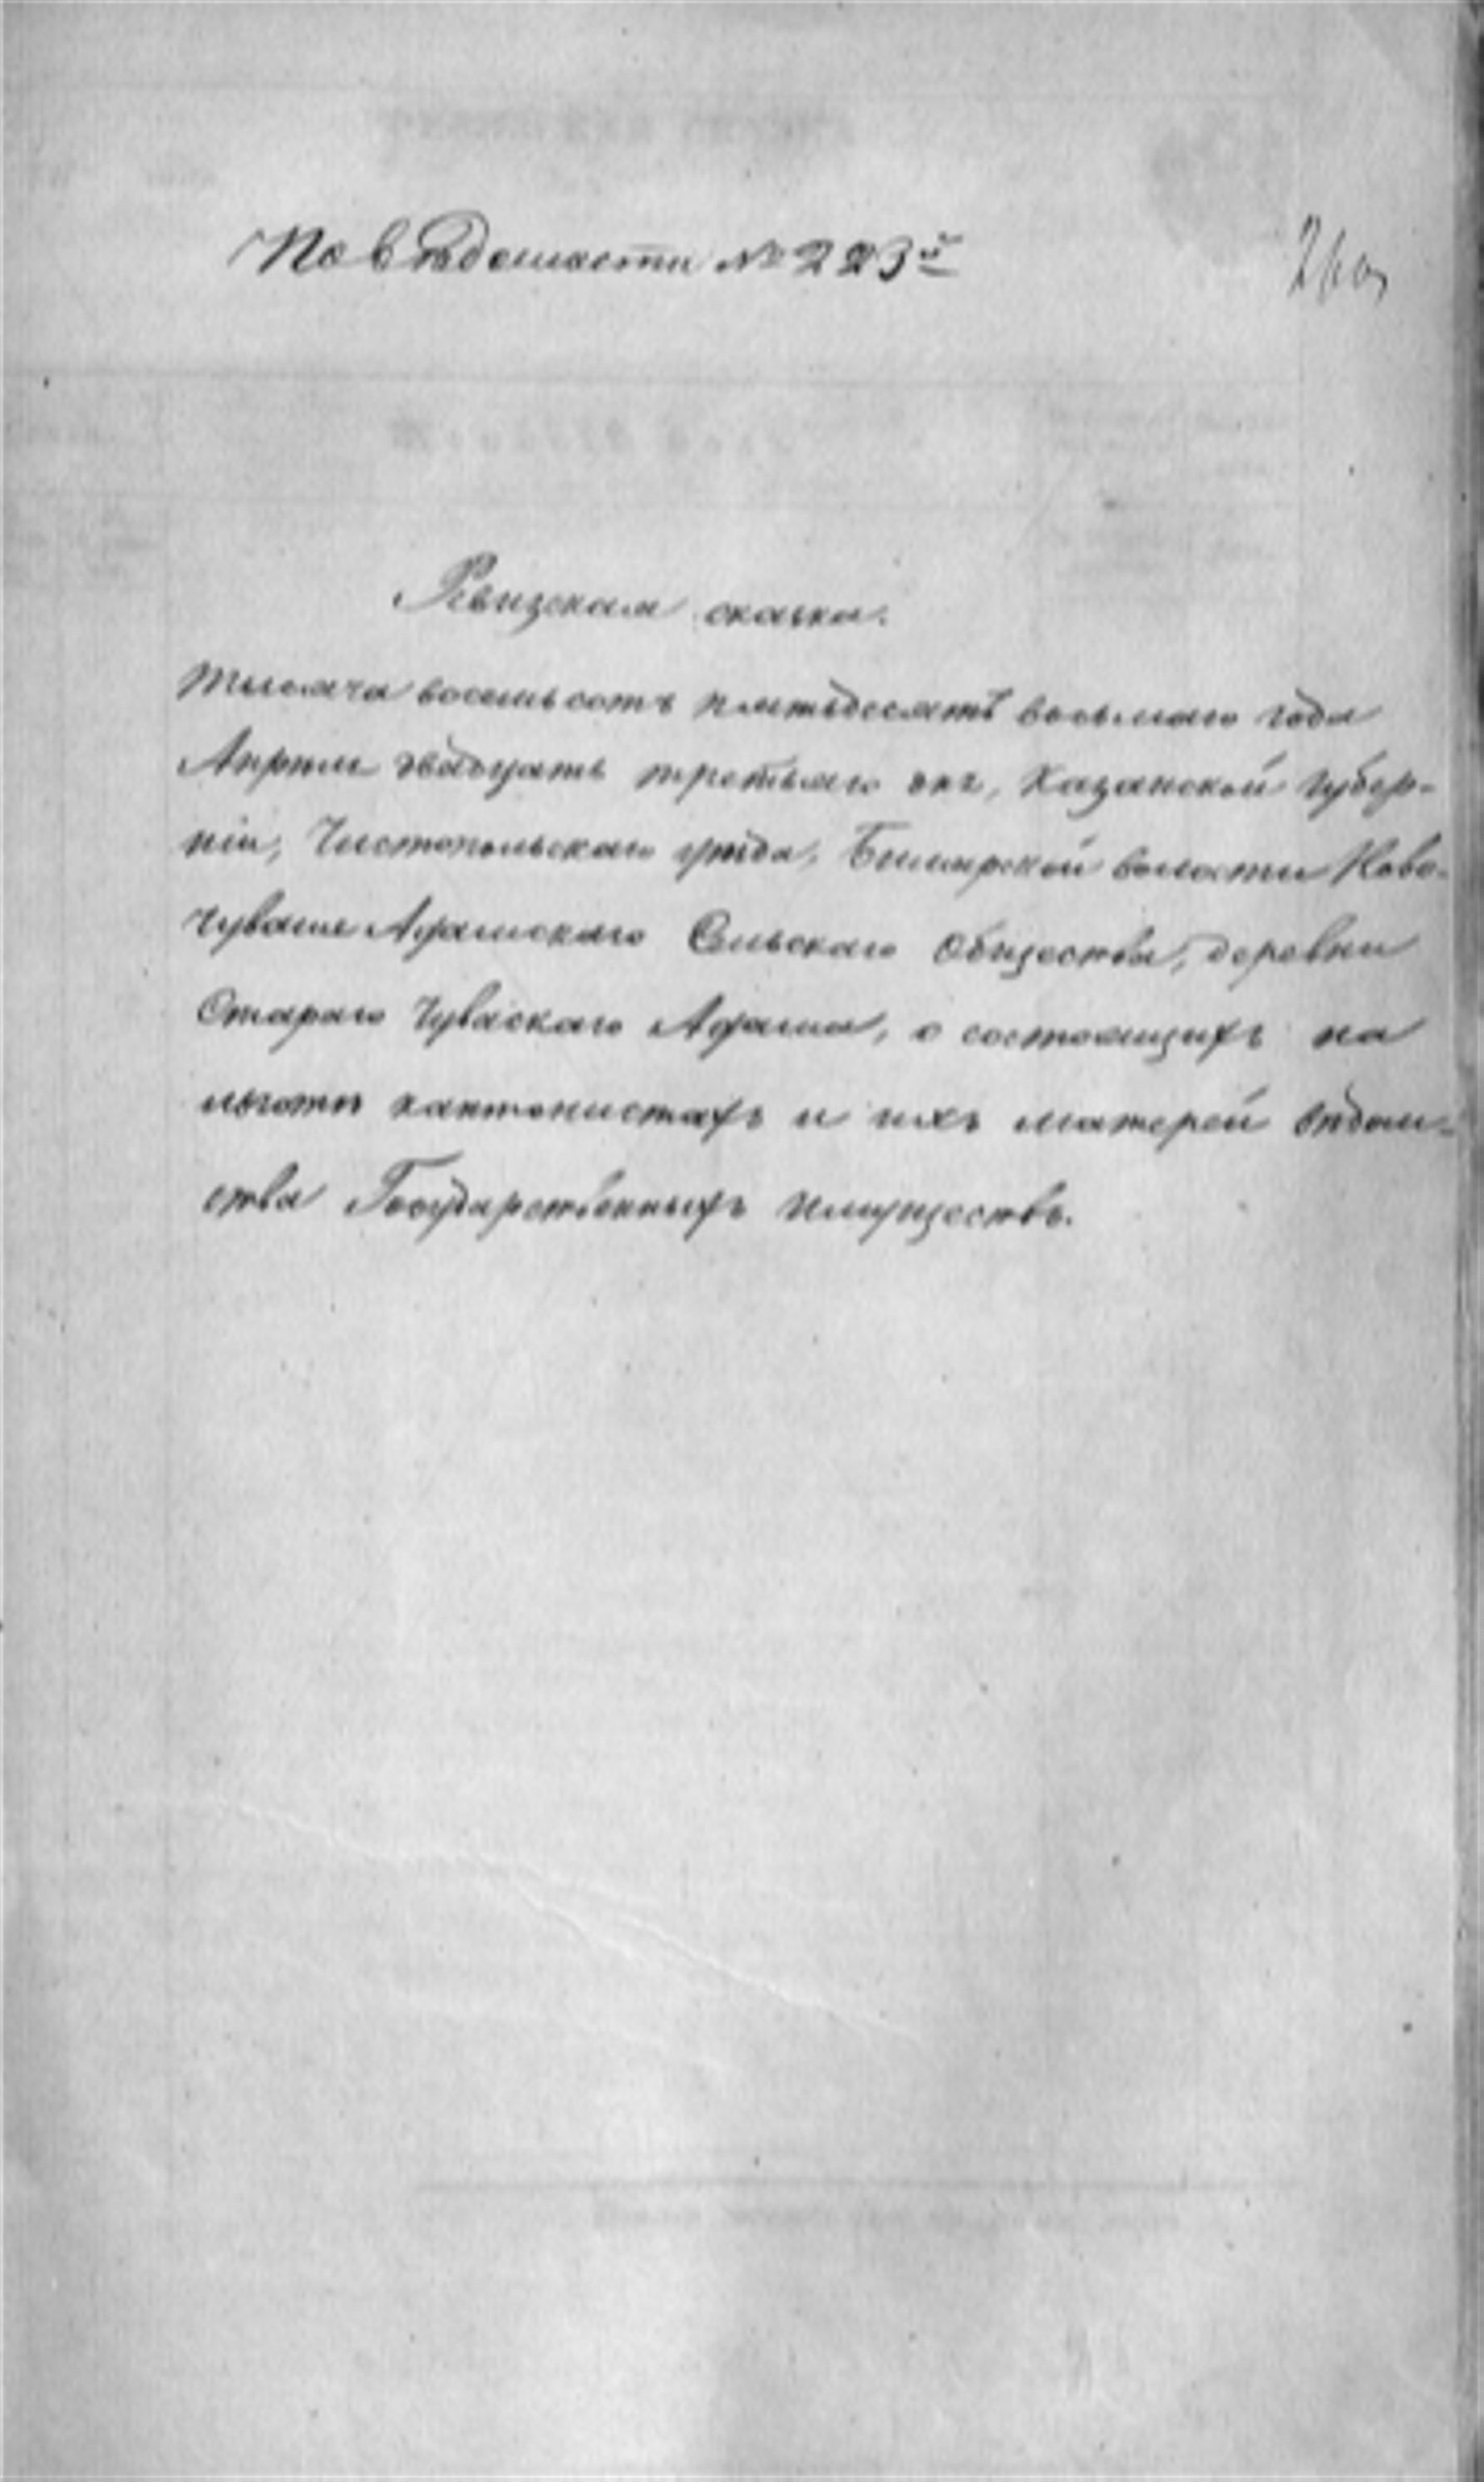 По вѣдомости № 223й
Ревизская сказка.
тысяча восемьсотъ пятьдесятъ восьмаго года
Апрѣля двадцать третьяго дня, Казанской губер-
ніи, Чистопольскаго уѣзда, Билярской волости Ново-
Чуваше Адамскаго Сельскаго Общества, деревни
Стараго Чувaскаго Адама, о состоящихъ на
льготѣ кантонистахъ и ихъ матерей вѣдом-
ства Государственныхъ Имуществъ.